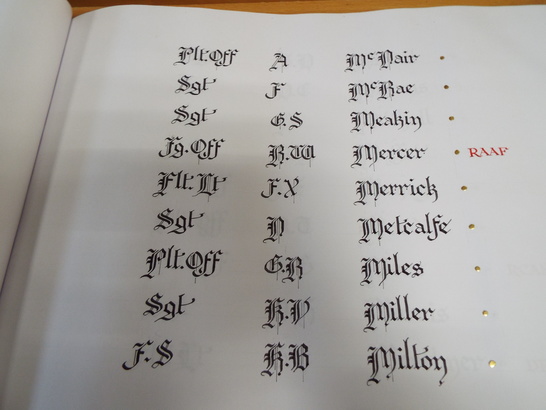 Plt.Off A McNair
Sgt F McRae
Sgt G.S Meakin
Fg.Off R.W Mercer RAAF
Flt.Lt F.X Merrick
Sgt N Metcalfe
Plt.Off G.R Miles
Sgt Miller
F.S Milton